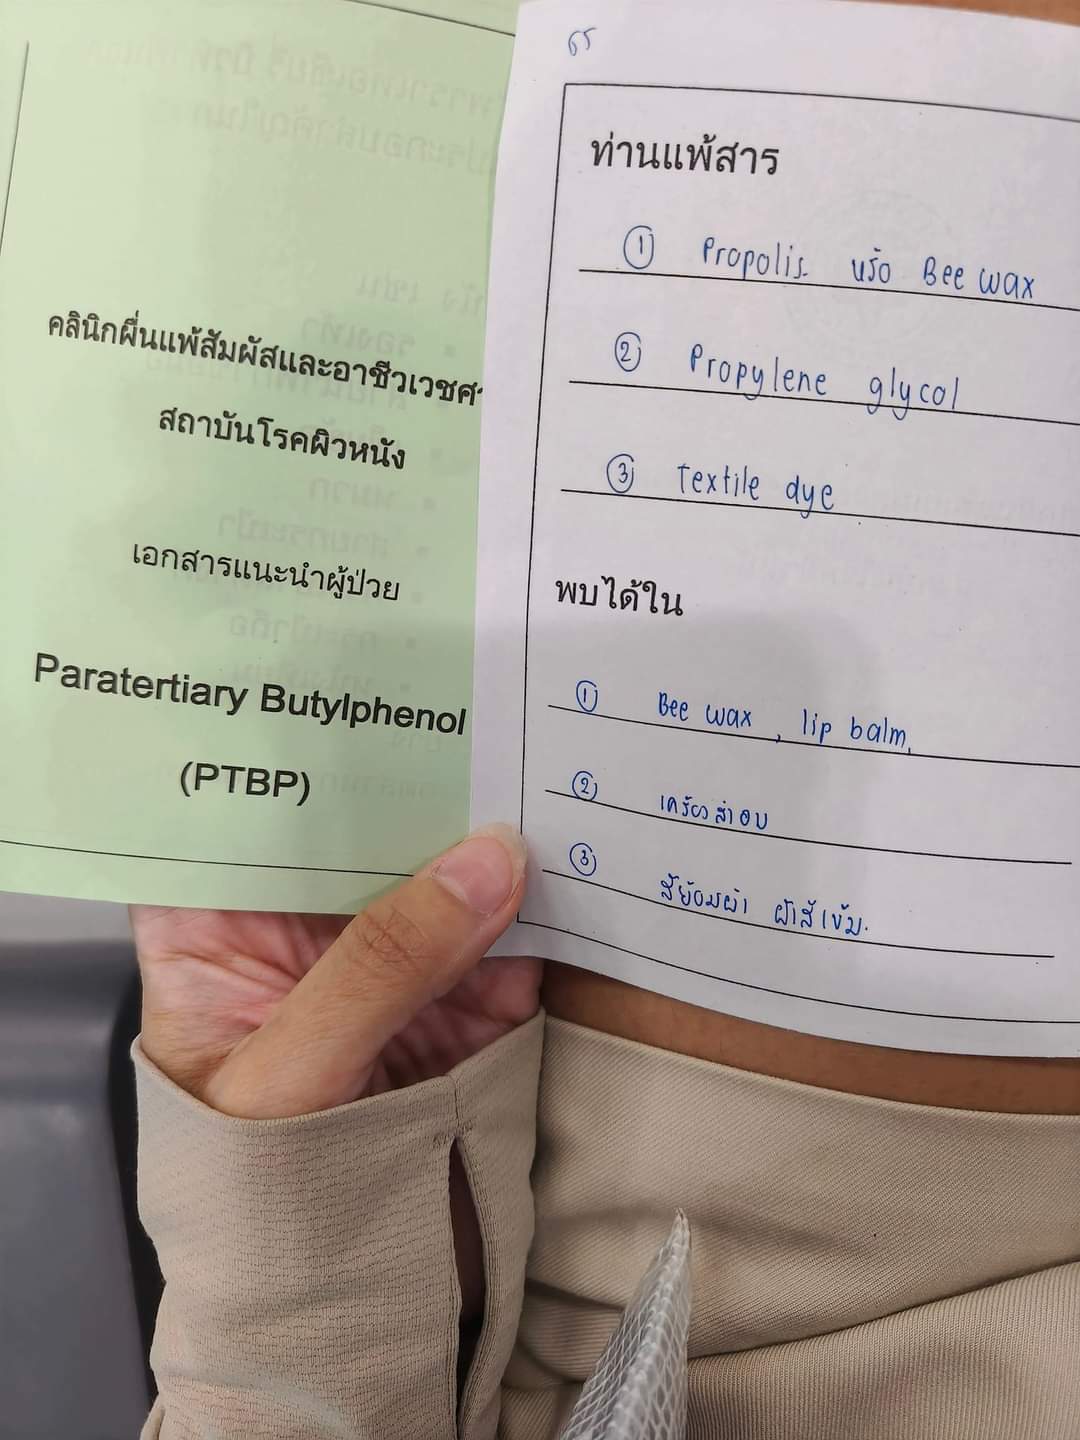 คลินิกผื่นแพ้สัมผัสและอาชีวเวชศา
สถาบันโรคผิวหนัง
เอกสารแนะนำผู้ป่วย
Paratertiary Butylphenol
(PTBP)
65
ท่านแพ้สาร
① Propolis หรือ Bee wax
② Propylene glycol
③ Textile dye
พบได้ใน
① Bee wax , lip balm,
② เครื่องสำอาง
③ สีย้อมผ้า ผ้าสีเข้ม.